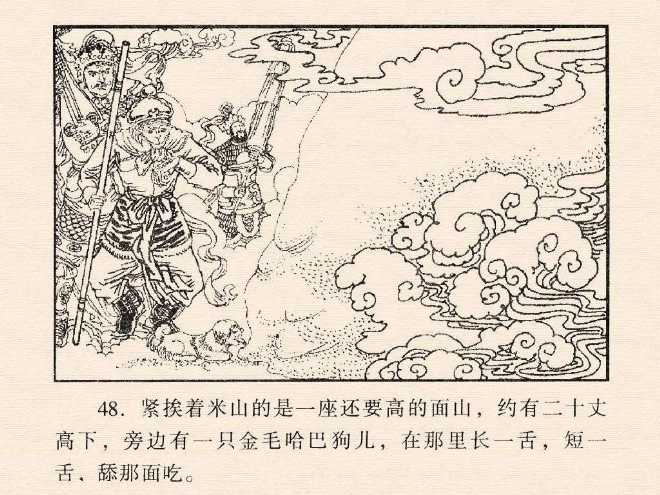 48. 紧挨着米山的是一座还要高的面山，约有二十丈
高下，旁边有一只金毛哈巴狗儿，在那里长一舌，短一
舌，舔那面吃。